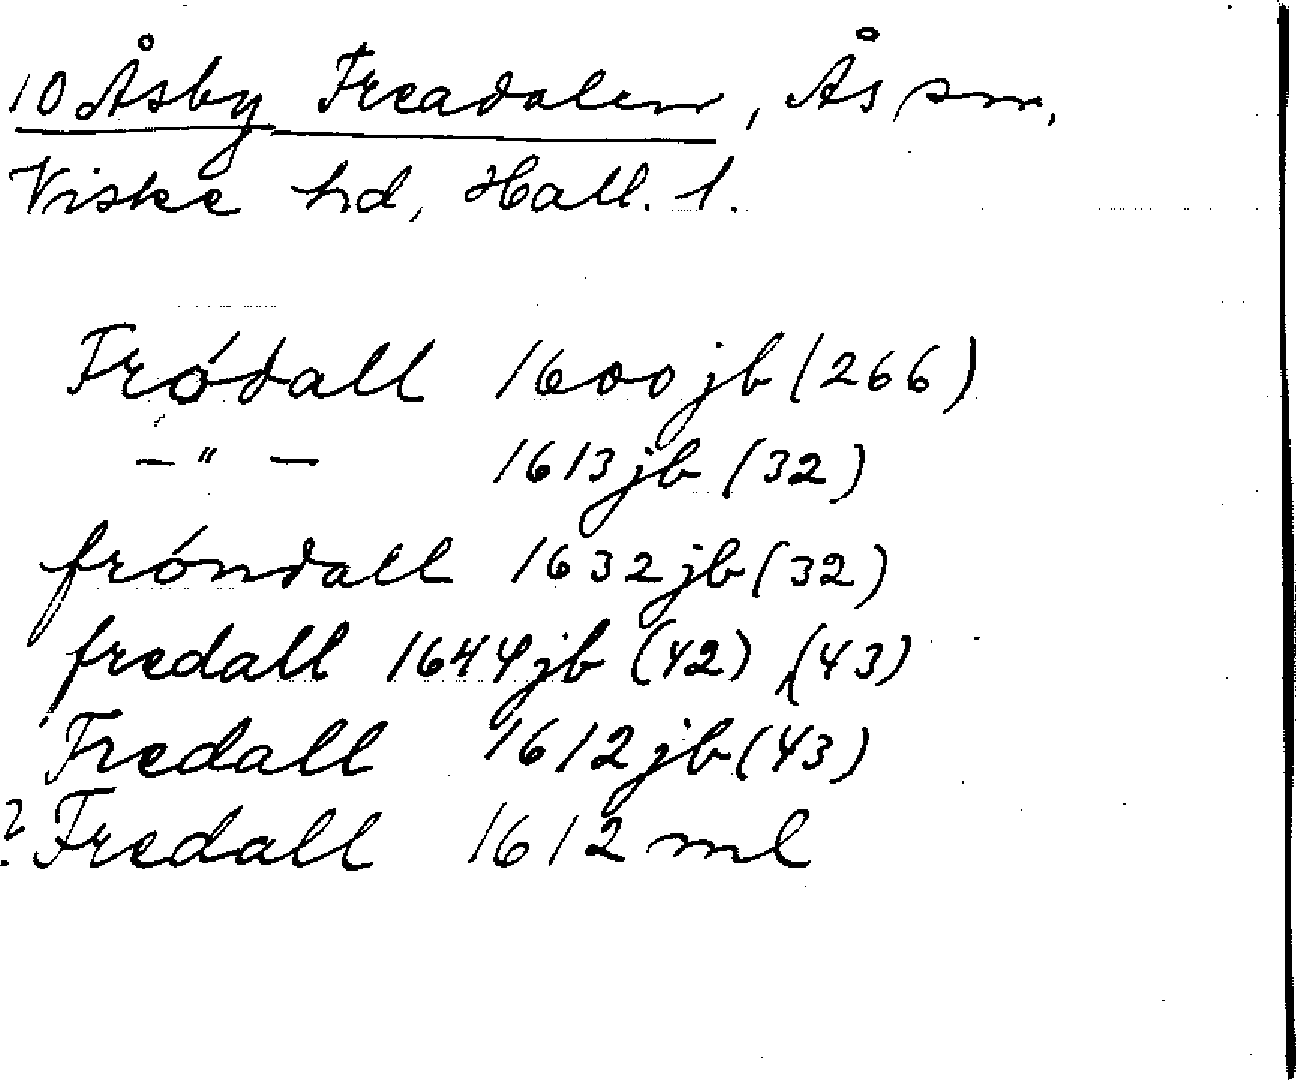 10 Åsby Freadalen, Ås sn,
Viske hd, Hall. l.
Fródall 1600 jb (266)
— " — 1613 jb (32)
fróndall 1632 jb (32)
fredall 1644 jb (42) (43)
Fredall 1612 jb (43)
? Fredall 1612 ml